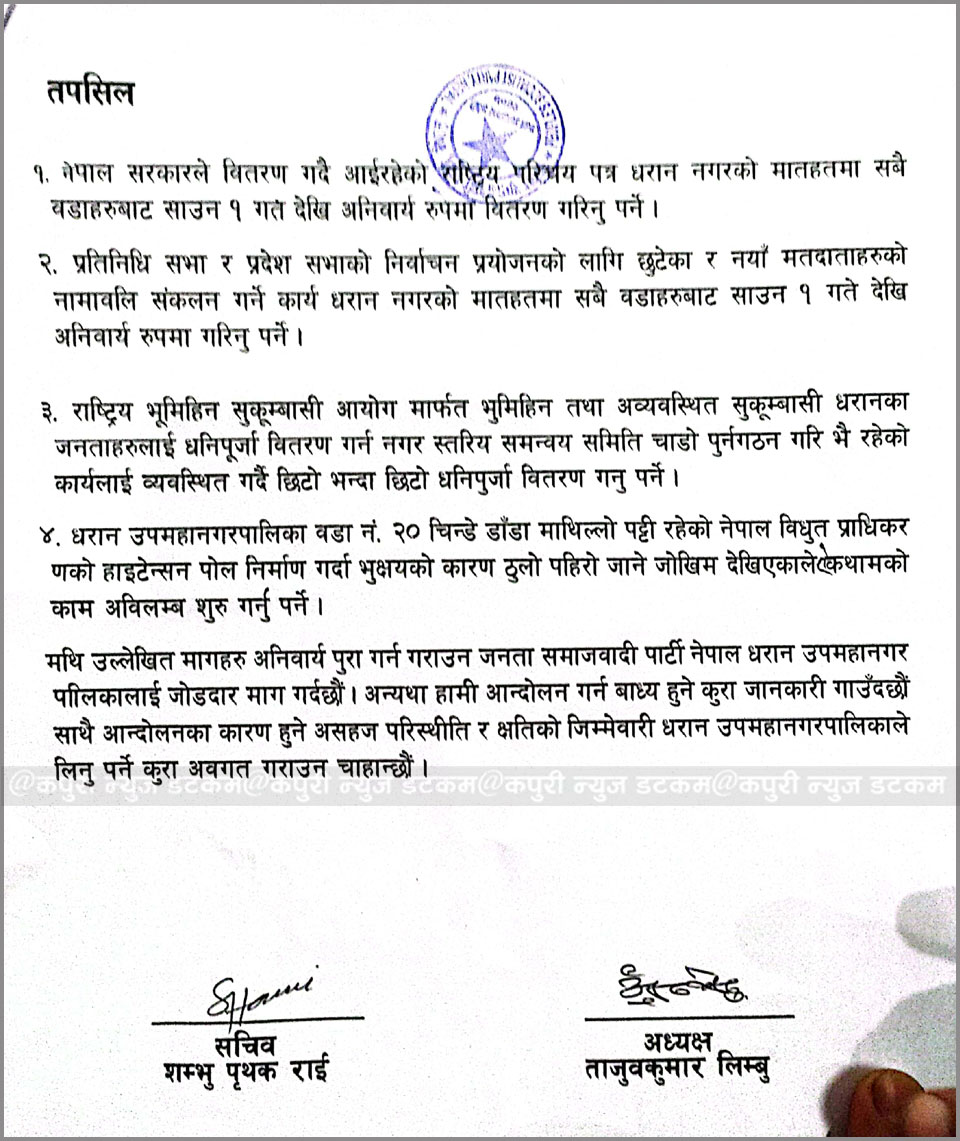 तपसिल
१. नेपाल सरकारले वितरण गर्दै आईरहेको राष्ट्रिय परिचय पत्र धरान नगरको मातहतमा सबै
वडाहरुबाट साउन १ गते देखि अनिवार्य रुपमा वितरण गरिनु पर्ने।
२. प्रतिनिधि सभा र प्रदेश सभाको निर्वाचन प्रयोजनको लागि छुटेका र नयाँ मतदाताहरुको
नामावलि संकलन गर्ने कार्य धरान नगरको मातहतमा सबै वडाहरुबाट साउन १ गते देखि
अनिवार्य रुपमा गरिनु पर्ने।
३. राष्ट्रिय भूमिहिन सुकूम्बासी आयोग मार्फत भुमिहिन तथा अव्यवस्थित सुकूम्बासी धरानका
जनताहरुलाई धनिपूर्जा वितरण गर्न नगर स्तरिय समन्वय समिति चाडो पुर्नगठन गरि भै रहेको
कार्यलाई व्यवस्थित गर्दै छिटो भन्दा छिटो धनिपुर्जा वितरण गनु पर्ने।
४. धरान उपमहानगरपालिका वडा नं. २० चिन्डे डाँडा माथिल्लो पट्टी रहेको नेपाल विधुत प्राधिकर
णको हाइटेन्सन पोल निर्माण गर्दा भुक्षयको कारण ठुलो पहिरो जाने जोखिम देखिएकाले रोकथामको
काम अविलम्ब शुरु गर्नु पर्ने।
मथि उल्लेखित मागहरु अनिवार्य पुरा गर्न गराउन जनता समाजवादी पार्टी नेपाल धरान उपमहानगर
पाीलिकालाई जोडदार माग गर्दछौं। अन्यथा हामी आन्दोलन गर्न बाध्य हुने कुरा जानकारी गाउँदछौं
साथै आन्दोलनका कारण हुने असहज परिस्थीति र क्षतिको जिम्मेवारी धरान उपमहानगरपालिकाले
लिनु पर्ने कुरा अवगत गराउन चाहान्छौं।
@कपुरी न्युज डटकम@कपुरी न्युज डटकम@कपुरी न्युज डटकम
सचिव
शम्भु पृथक राई
अध्यक्ष
ताजुवकुमार लिम्बु